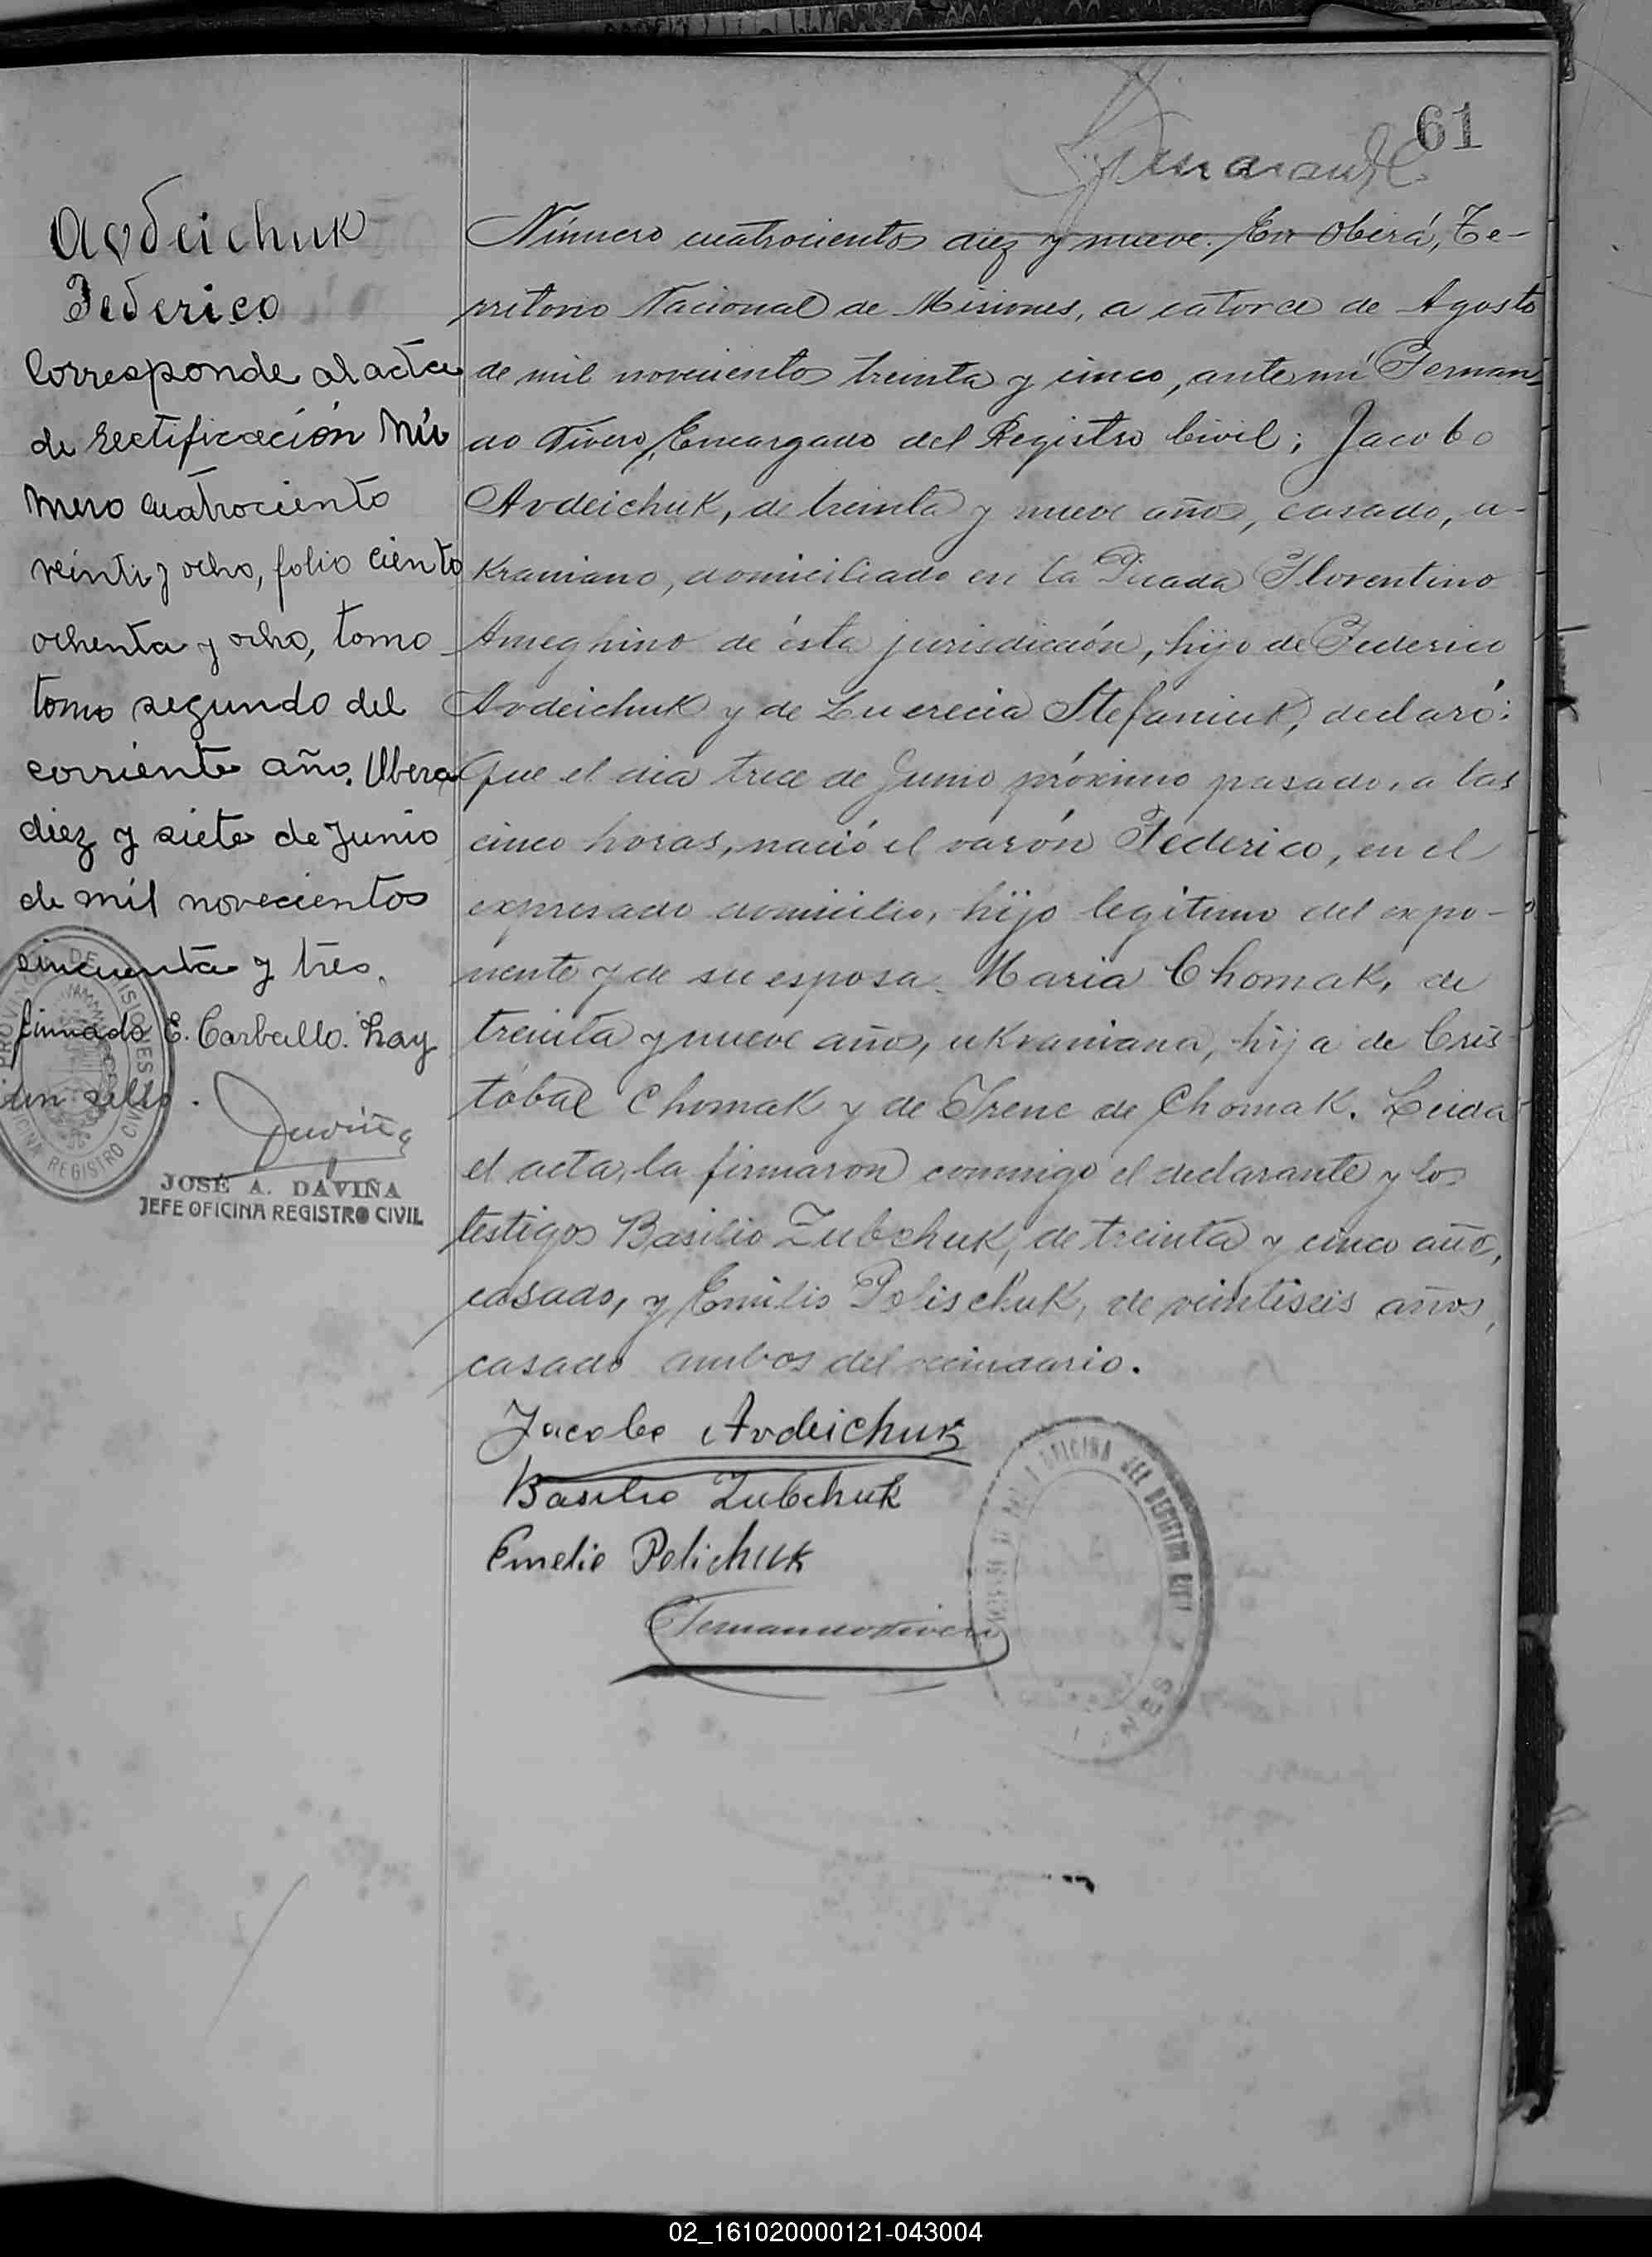 61
Avdeichuk
Federico
Corresponde al acta
de rectificación Nú
mero cuatrociento
veinti y ocho, folio ciento
ochenta y ocho, tomo
tomo segundo del
corriente año. Obera
diez y siete de Junio
de mil novecientos
cincuenta y tres.
firmado E. Carballo. hay
un sello.
JOSÉ A. DAVIÑA
JEFE OFICINA REGISTRO CIVIL
PROVINCIA DE MISIONES
OFICINA REGISTRO CIVIL
Número cuatrocientos diez y nueve. En Oberá, Te-
rritorio Nacional de Misiones, a catorce de Agosto
de mil novecientos treinta y cinco, ante mí Fernan-
do Tivero, Encargado del Registro Civil; Jacobo
Avdeichuk, de treinta y nueve años, casado, u-
kraniano, domiciliado en la Picada Florentino
Ameghino de ésta jurisdicción, hijo de Federico
Avdeichuk y de Lucrecia Stefaniuk, declaró:
Que el dia trece de Junio próximo pasado, a las
cinco horas, nació el varón Federico, en el
expresado domicilio, hijo legítimo del expo-
nente y de su esposa Maria Chomak, de
treinta y nueve años, ukraniana, hija de Cris-
tóbal Chomak y de Irene de Chomak. Leida
el acta, la firmaron conmigo el declarante y los
testigos Basilio Zubchuk, de treinta y cinco años,
casado, y Emilio Polischuk, de veintiseis años,
casado ambos del vecindario.
Jacobo Avdeichuk
Basilio Zubchuk
Emelio Polichuk
Fernando Tivero
OFICINA DEL REGISTRO CIVIL
02_161020000121-043004